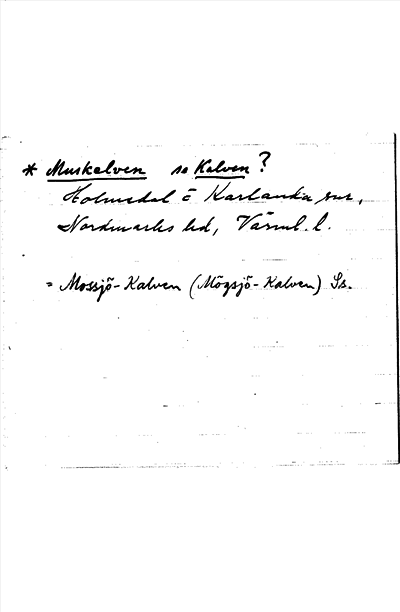 * Muskalven se Kalven?
Holmedal o Karlanda snr,
Nordmarks hd, Värml. l.
= Mossjö-Kalven (Mögsjö-Kalven) Ss.